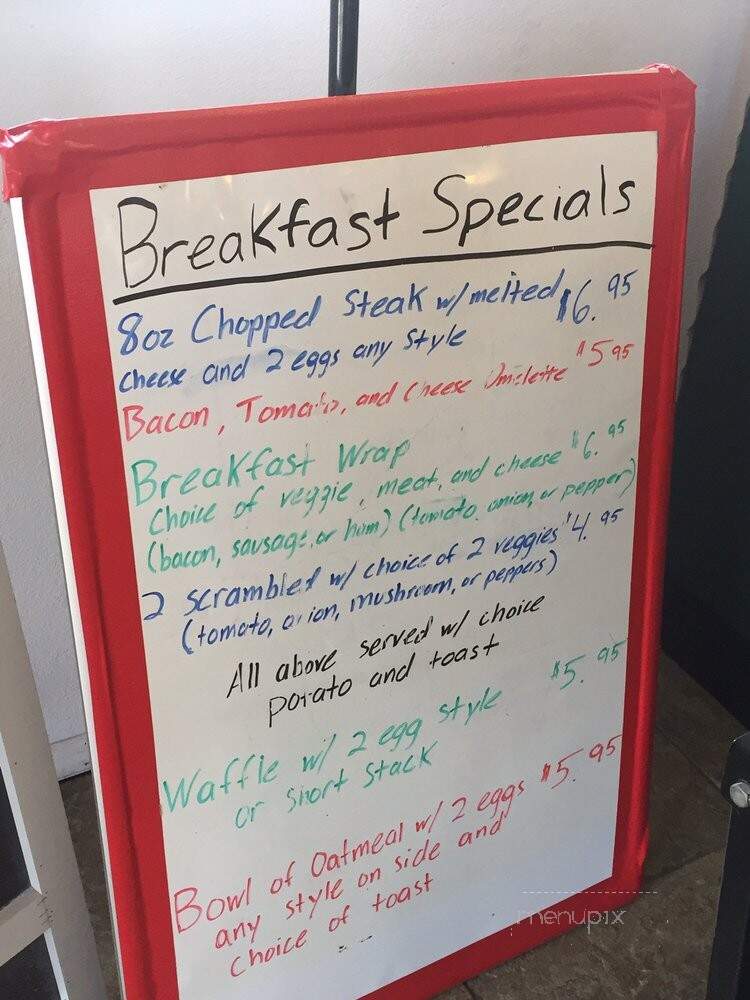 Breakfast Specials
8oz Chopped Steak w/ melted $6.95
cheese and 2 eggs any style
Bacon, Tomato, and Cheese Omelette $5.95
Breakfast Wrap
Choice of veggie, meat, and cheese $6.95
(bacon, sausage, or ham) (tomato, onion, or pepper)
2 scrambled w/ choice of 2 veggies $4.95
(tomato, onion, mushroom, or peppers)
All above served w/ choice
potato and toast
Waffle w/ 2 egg style $5.95
or short stack
Bowl of Oatmeal w/ 2 eggs $5.95
any style on side and
choice of toast
menupix